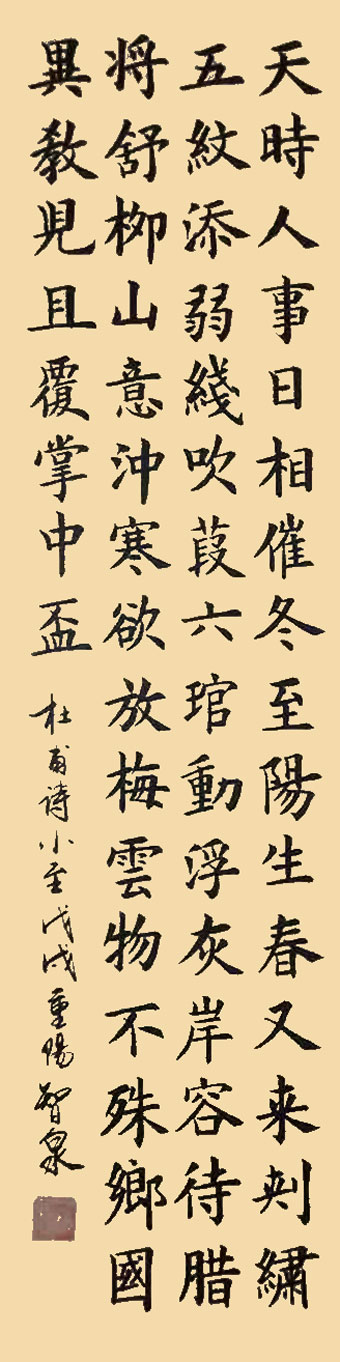 天時人事日相催冬至陽生春又来刺繡
五紋添弱綫吹葭六琯動浮灰岸容待腊
将舒柳山意沖寒欲放梅雲物不殊鄉國
異教児且覆掌中盃
杜甫詩小至戊戌重陽智泉